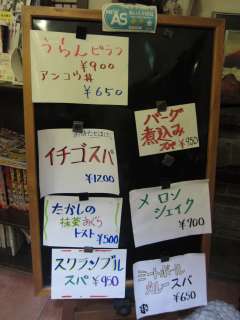 うらんピラフ
¥900
アンコウ丼
¥650
バーグ
煮込み
¥950
お待たせしました
イチゴスパ
¥1200
メロン
シェイク
¥900
たかしの
抹茶おぐら
トースト ¥500
スクランブル
スパ ¥950
ミートボール
カレースパ
¥650